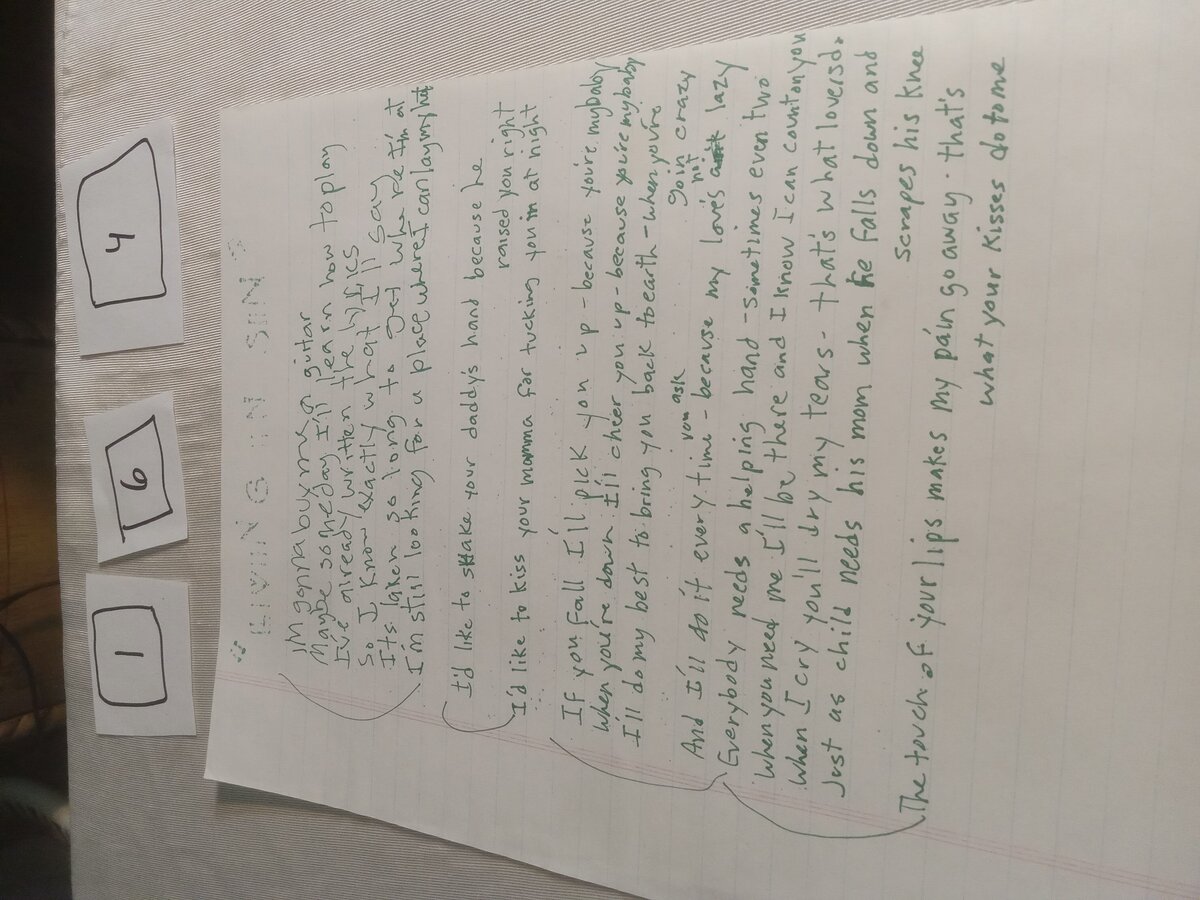 1
6
4
LIVING IN SIN
I'm gonna buy me a guitar
Maybe someday I'll learn how to play
I've already written the lyrics
So I know exactly what I'll say
It's taken so long to get where I'm at
I'm still looking for a place where I can lay my hat
I'd like to shake your daddy's hand because he
raised you right
I'd like to kiss your momma for tucking you in at night
If you fall I'll pick you up - because you're my baby
When you're down I'll cheer you up - because you're my baby
I'll do my best to bring you back to earth - when you're
goin crazy
And I'll do it every time you ask - because my love's not lazy
Everybody needs a helping hand - sometimes even two
When you need me I'll be there and I know I can count on you
When I cry you'll dry my tears - that's what lovers do
Just as child needs his mom when he falls down and
scrapes his knee
The touch of your lips makes my pain go away - that's
what your kisses do to me